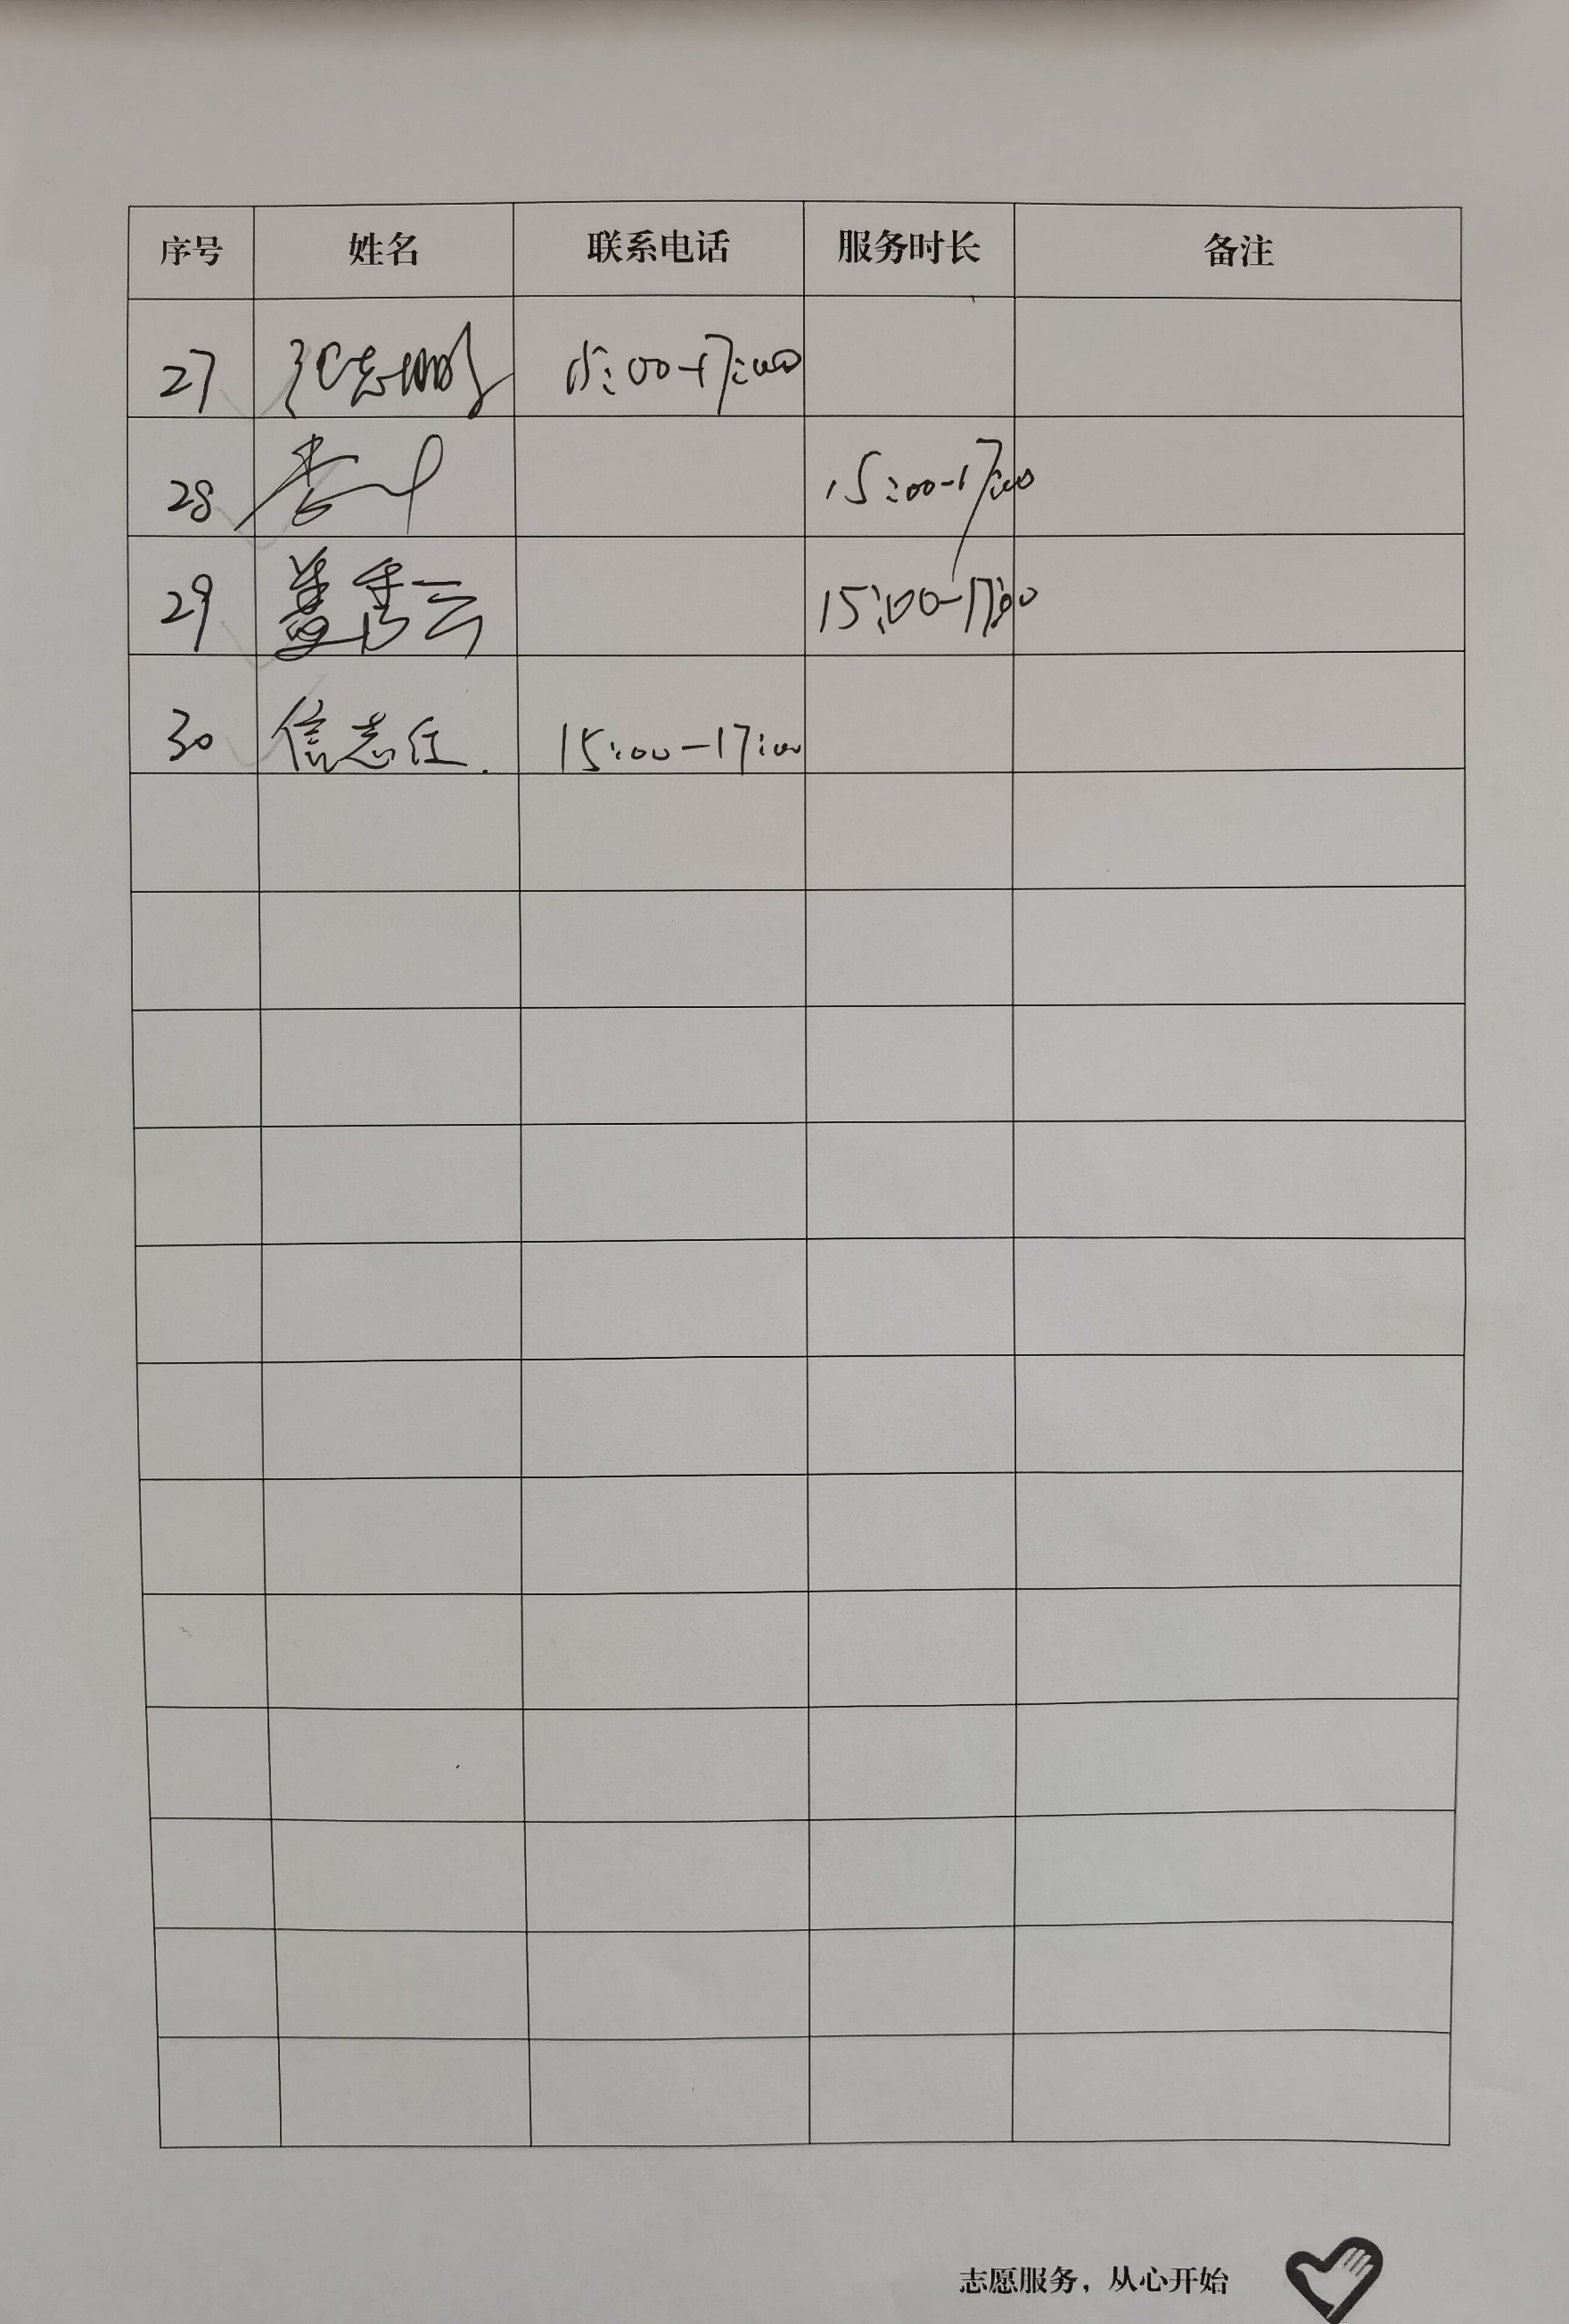 序号 姓名 联系电话 服务时长 备注
27 15:00-17:00
28 李 15:00-17:00
29 盖秀云 15:00-17:00
30 信志任. 15:00-17:00
志愿服务，从心开始